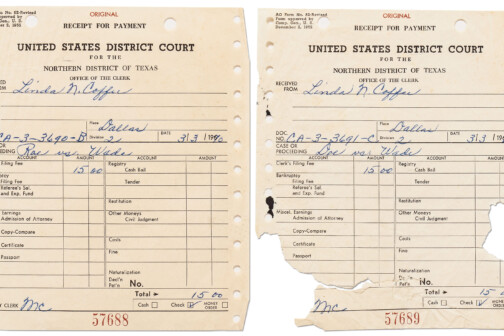 ORIGINAL
RECEIPT FOR PAYMENT
UNITED STATES DISTRICT COURT
FOR THE
NORTHERN DISTRICT OF TEXAS
OFFICE OF THE CLERK
Linda N. Coffee
Place Dallas
CA-3-3690-B Division 3 DATE 3/3/1970
Roe vs. Wade
ACCOUNT ACCOUNT
Filing Fee 15 00 Registry
Cash Bail
Filing Fee Tender
Referee's Sal.
and Exp. Fund
Restitution
Earnings Other Moneys
Admission of Attorney Civil Judgment
Copy-Compare
Costs
Certificate
Fines
Passport
Naturalization
Dext'n
Pet'n No.
Total 15 00
CLERK Mc Cash Check MONEY ORDER
57688
AO Form No. 52-Revised
ORIGINAL
RECEIPT FOR PAYMENT
UNITED STATES DISTRICT COURT
FOR THE
NORTHERN DISTRICT OF TEXAS
OFFICE OF THE CLERK
RECEIVED
FROM Linda N. Coffee
Place Dallas
DOC.
NO. CA-3-3691-C Division DATE 3/3/1970
CASE OR
PROCEEDING Doe vs. Wade
ACCOUNT AMOUNT ACCOUNT AMOUNT
Clerk's Filing Fee 15 00 Registry
Cash Bail
Bankruptcy
Filing Fee Tender
Referee's Sal.
and Exp. Fund
Restitution
Monet. Earnings Other Moneys
Admission of Attorney Civil Judgment
Copy-Compare
Costs
Certificate
Fines
Naturalization
No.
Total 15 00
Mc Cash Check MONEY ORDER
57689